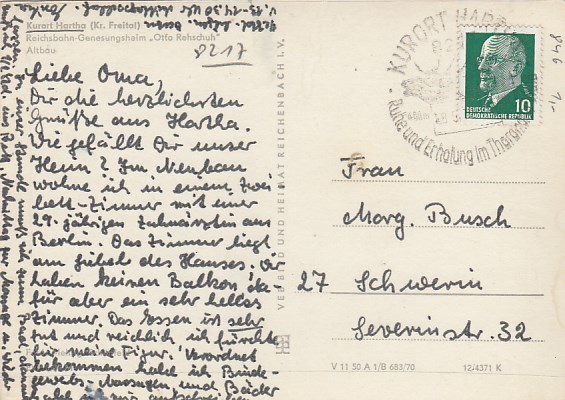 Kurort Hartha (Kr. Freital)
Reichsbahn-Genesungsheim „Otto Rehschuh"
Altbau
8217
Liebe Oma,
Dir die herzlichsten
Grüße aus Hartha.
Wie gefällt Dir unser
Heim? Im Neubau
wohne ich in einem Zwei
bett-Zimmer mit einer
29-jährigen Zahnärztin aus
Berlin. Das Zimmer liegt
am Giebel des Hauses. Wir
haben keinen Balkon, da-
für aber ein sehr helles
Zimmer. Das Essen ist sehr
gut und reichlich, ich fürchte
für meine Figur. Verordnet
bekommen hab ich Binde-
gewebs-Massagen, und Bäder
VEB BILD UND HEIMAT REICHENBACH I. V.
KURORT HARTHA
Ruhe und Erholung im
DEUTSCHE
DEMOKRATISCHE REPUBLIK
10
846
1,-
Frau
Marg. Busch
27 Schwerin
Severinstr. 32
V 11 50 A 1/B 683/70
12/4371 K